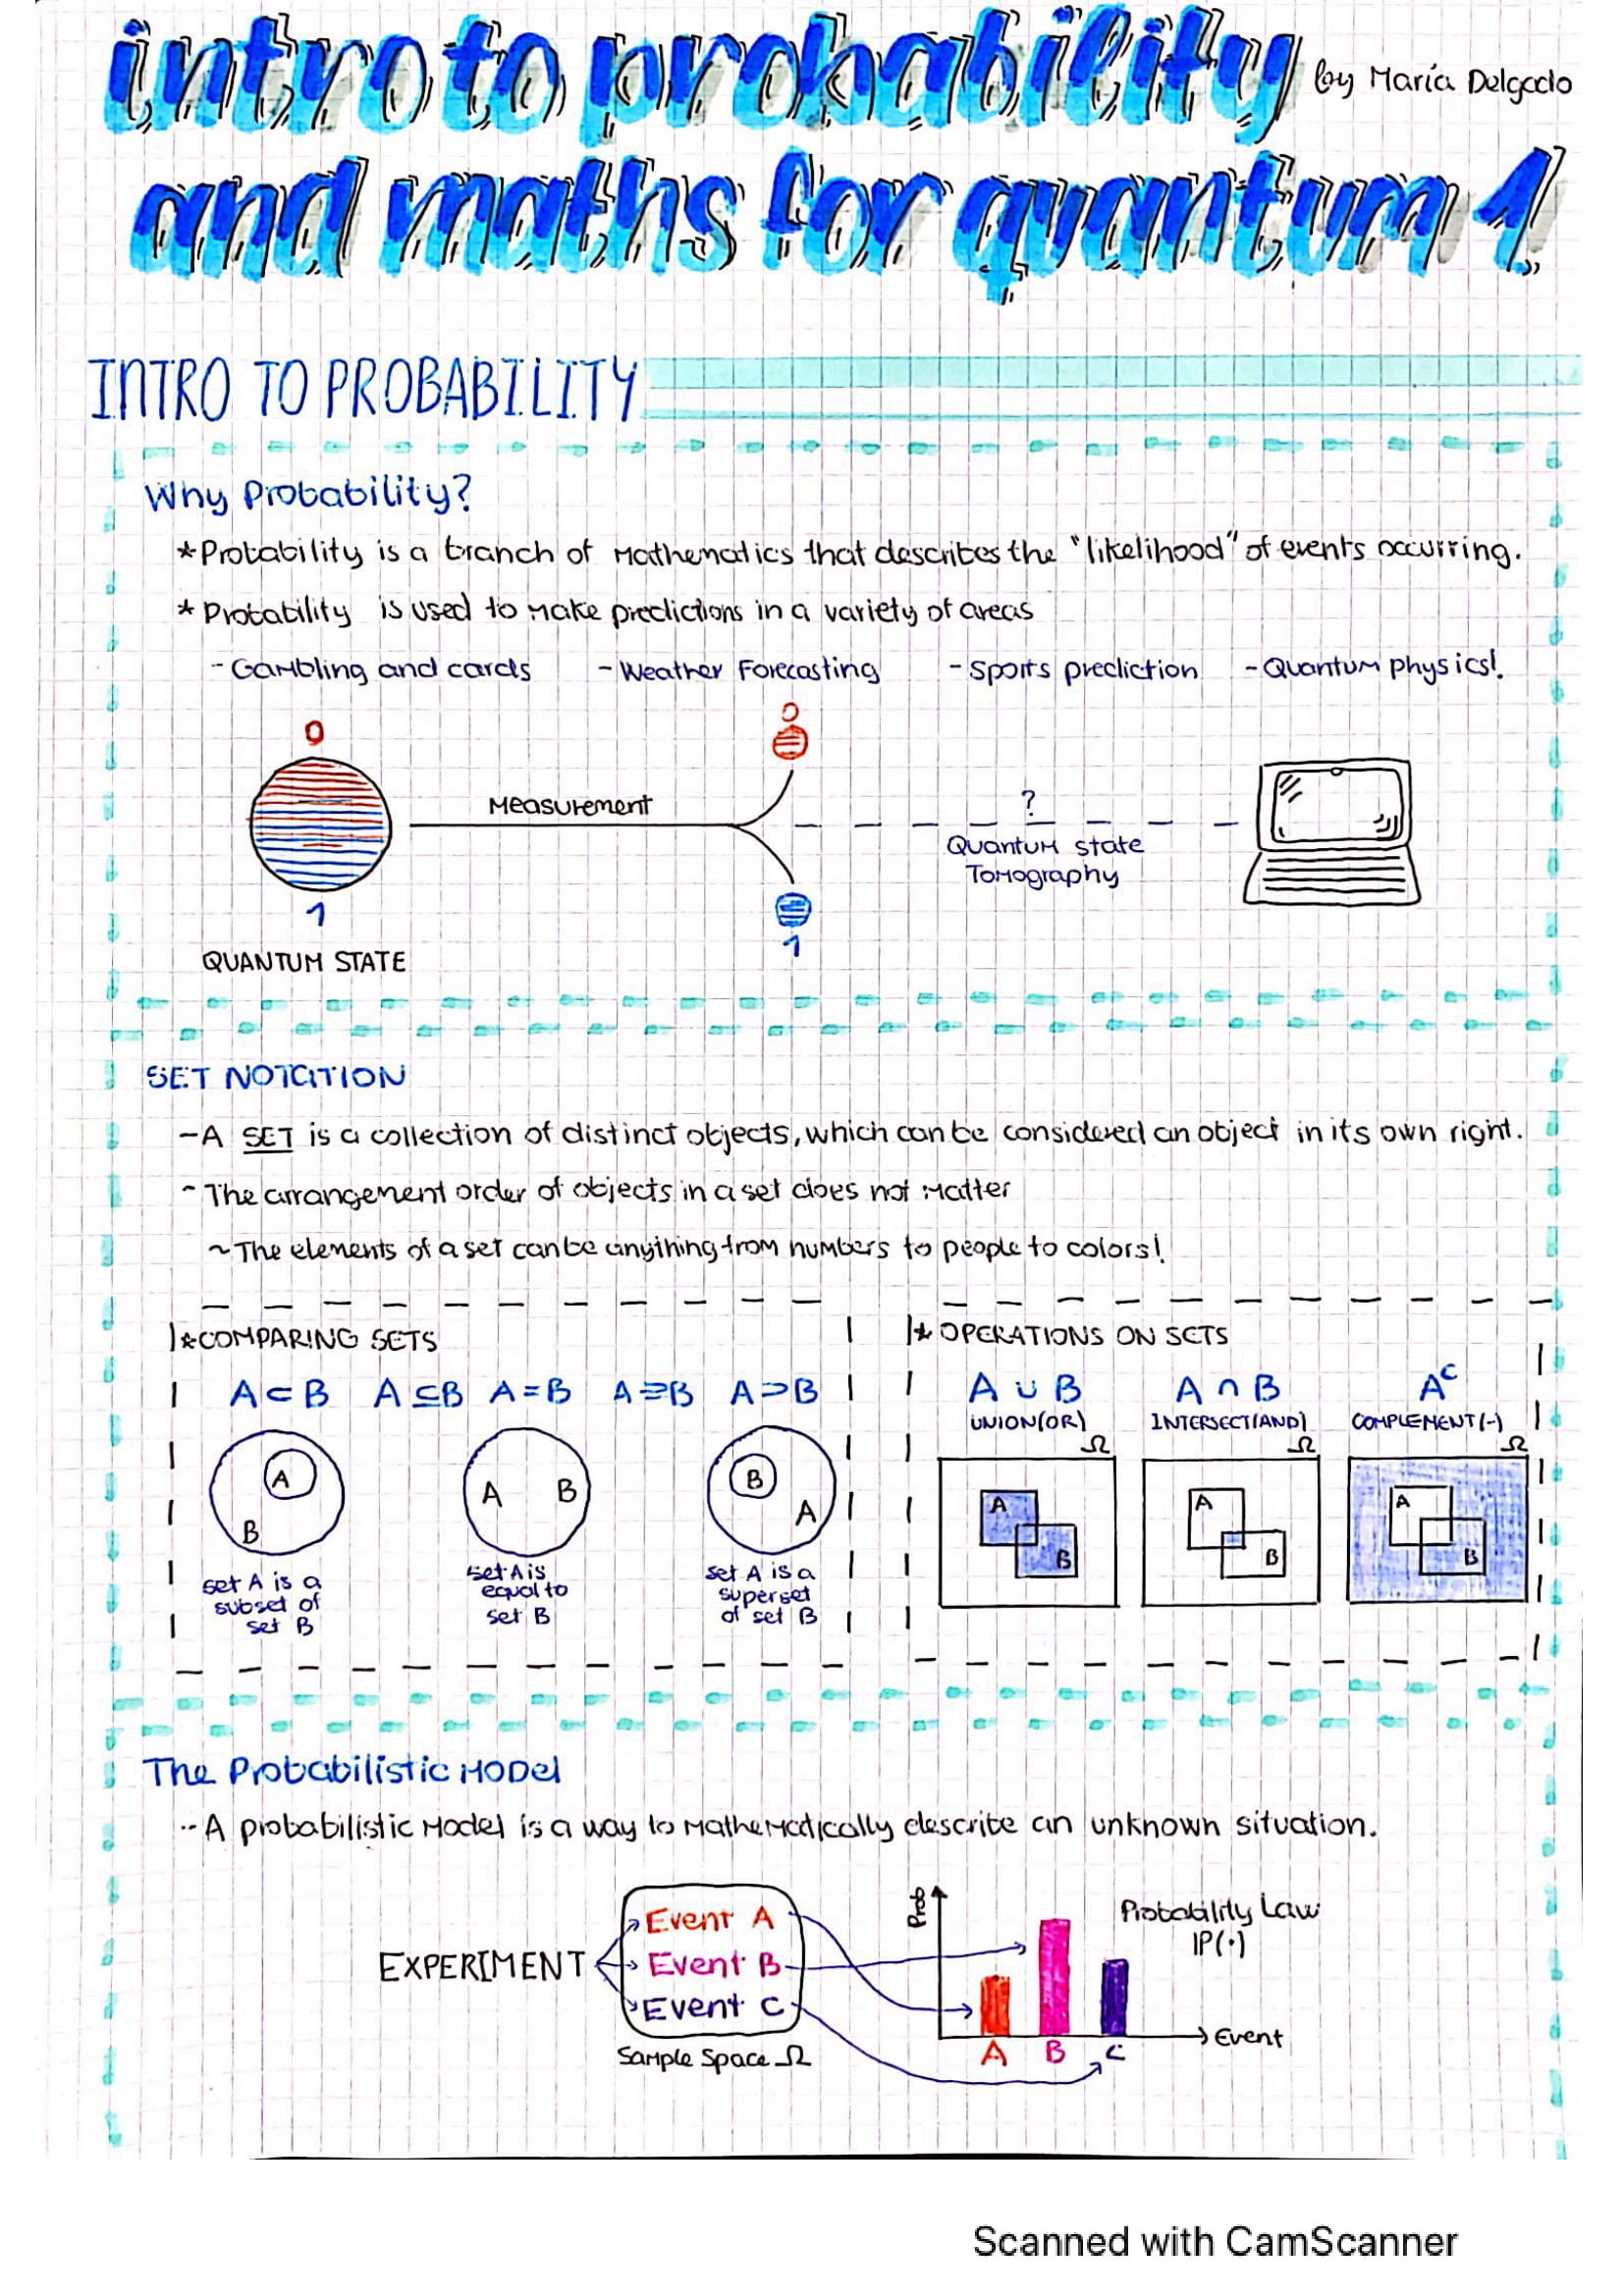 intro to probability by María Delgado
and maths for quantum 1
INTRO TO PROBABILITY
Why Probability?
*Probability is a branch of Mathematics that describes the "likelihood" of events occurring.
* Probability is used to make predictions in a variety of areas
- Gambling and cards - Weather Forecasting - Sports prediction - Quantum physics!
0 0
Measurement ?
Quantum state
Tomography
1 1
QUANTUM STATE
SET NOTATION
- A SET is a collection of distinct objects, which can be considered an object in its own right.
- The arrangement order of objects in a set does not matter
~ The elements of a set can be anything from numbers to people to colors!
* COMPARING SETS
A ⊂ B A ⊆ B A = B A ⊇ B A ⊃ B
A
B
set A is a
subset of
set B
A B
set A is
equal to
set B
B
A
set A is a
superset
of set B
* OPERATIONS ON SETS
A ∪ B A ∩ B A^C
UNION(OR) INTERSECT(AND) COMPLEMENT(-)
Ω Ω Ω
A A A
B B B
The Probabilistic Model
- A probabilistic Model is a way to Mathematically describe an unknown situation.
EXPERIMENT
Event A
Event B
Event C
Sample Space Ω
Prob
Probability Law
IP(·)
Event
A B C
Scanned with CamScanner